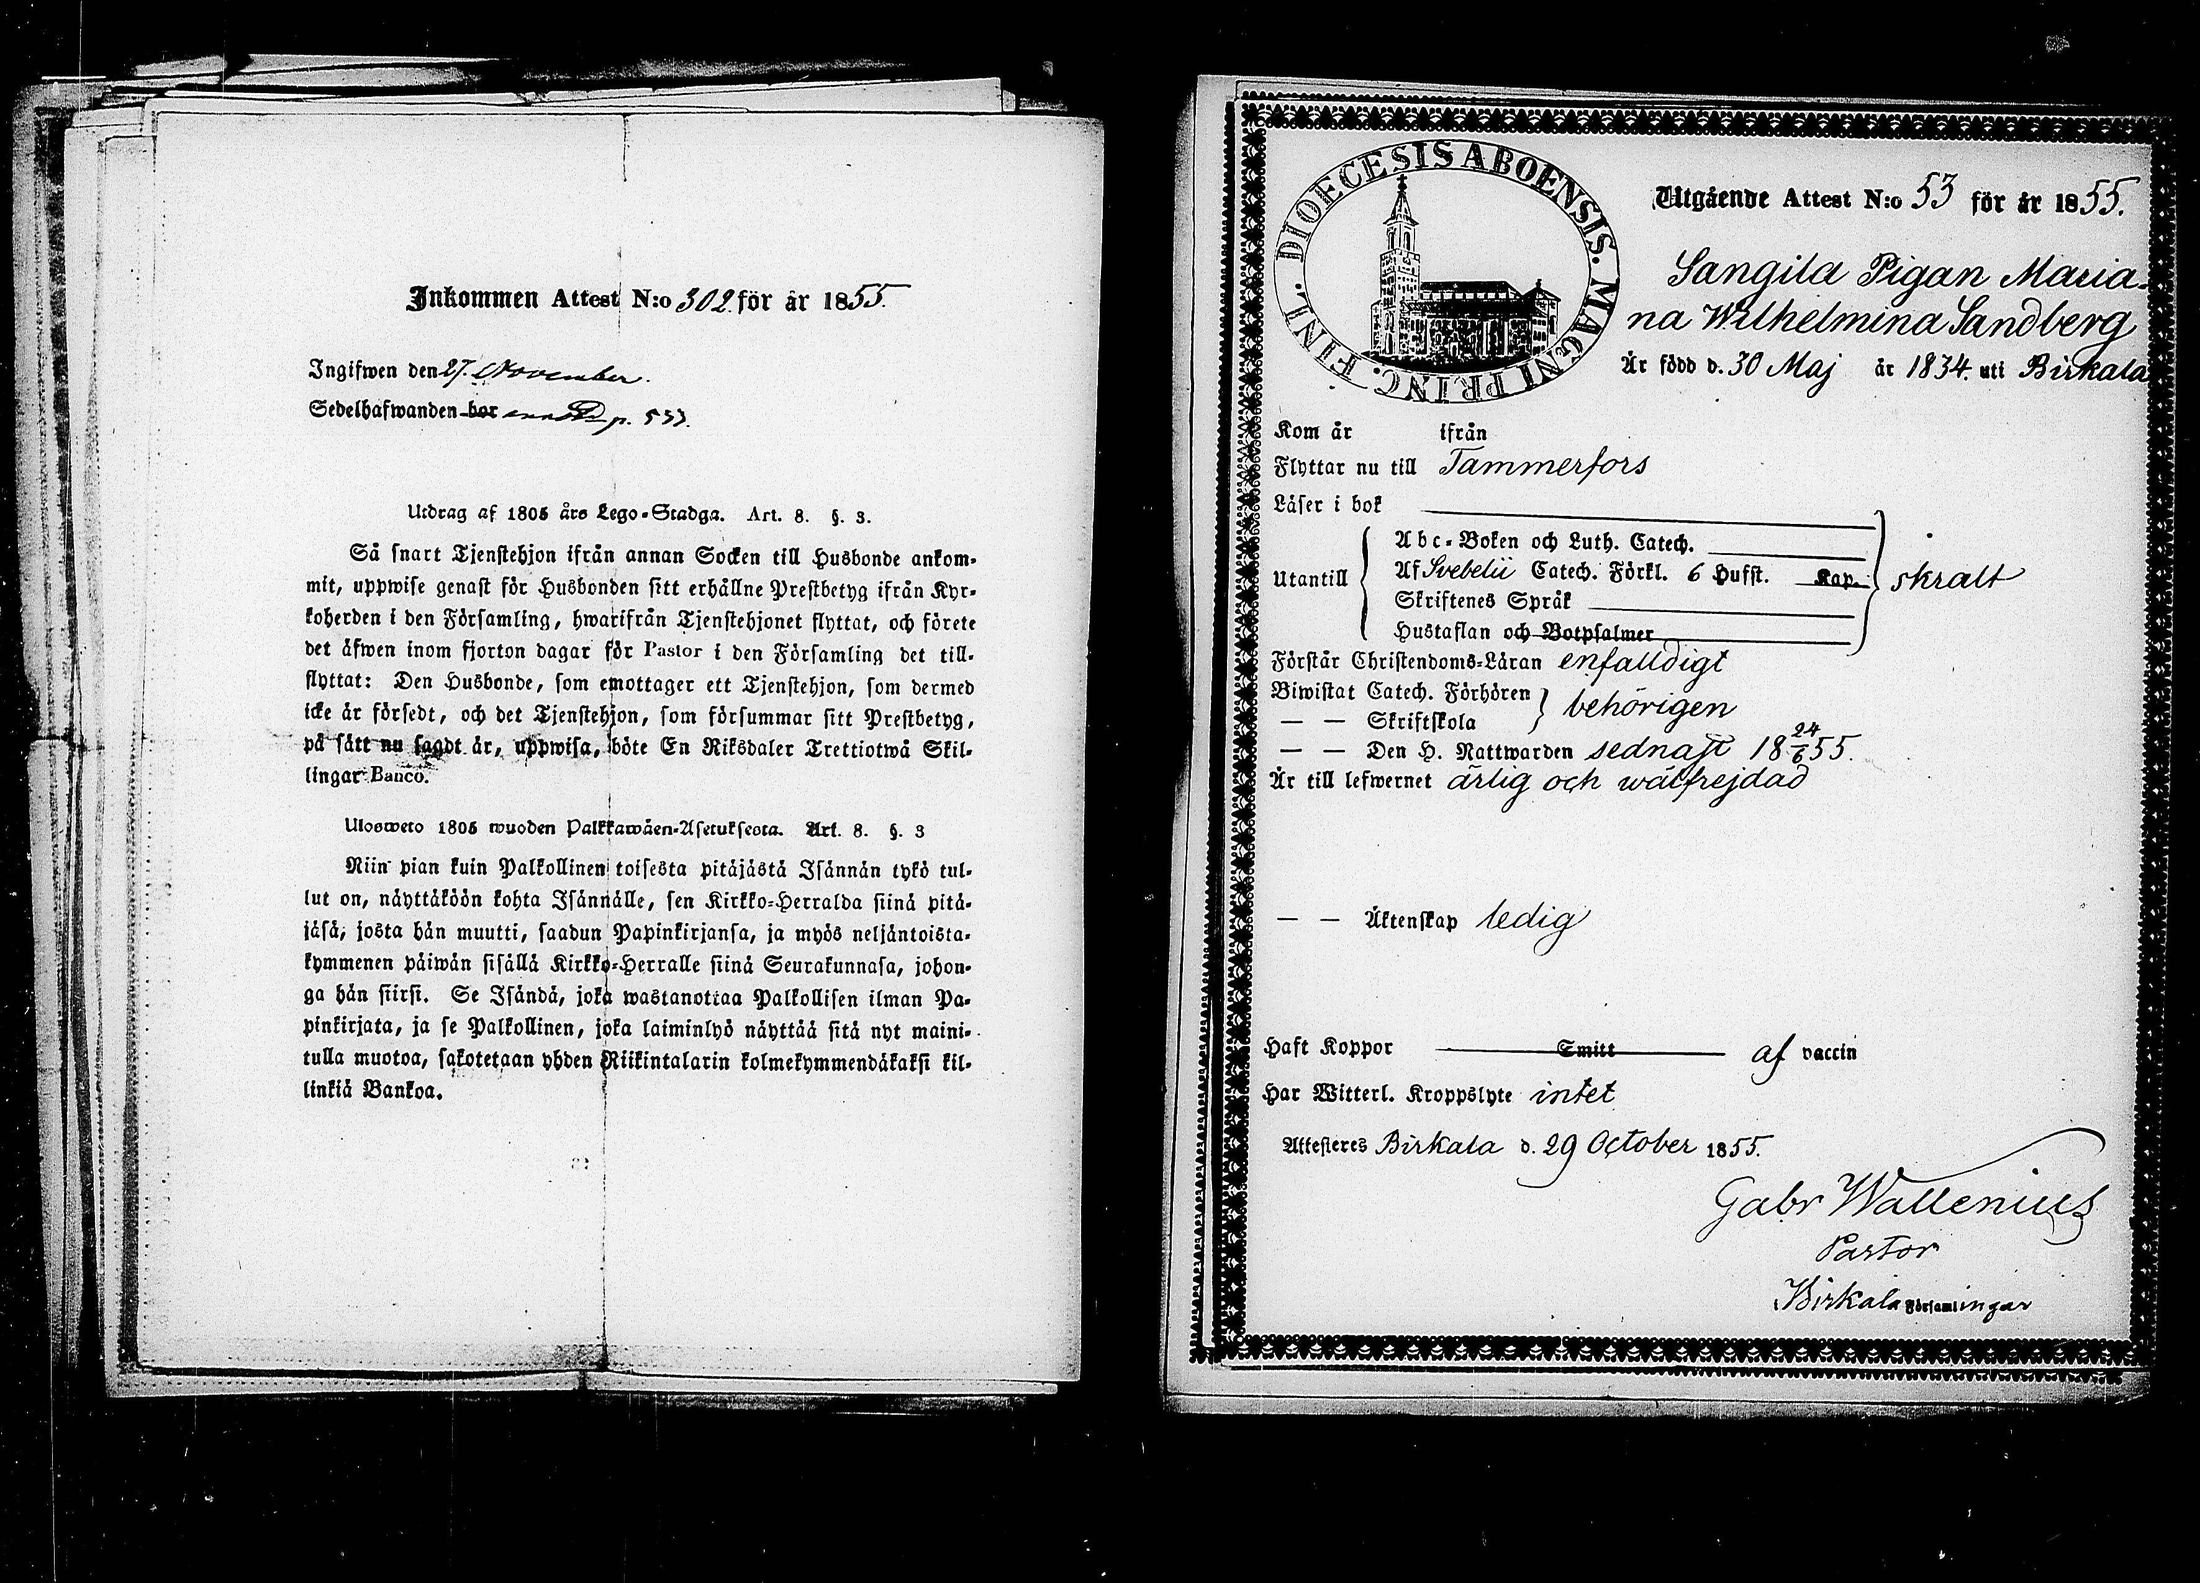 Inkommen Attest N:o 302. för år 1855.
Ingifwen den 27. November.
Sedelhafwanden bor p. 533.
Utdrag af 1805 års Lego-Stadga. Art. 8. §. 3.
Så snart Tjenstehjon ifrån annan Socken till Husbonde ankom-
mit, uppwise genast för Husbonden sitt erhållne Prestbetyg ifrån Kyr-
koherden i den Församling, hwarifrån Tjenstehjonet flyttat, och förete
det äfwen inom fjorton dagar för Pastor i den Församling det till-
flyttat: Den Husbonde, som emottager ett Tjenstehjon, som dermed
icke är försedt, och det Tjenstehjon, som försummar sitt Prestbetyg,
på sätt nu sagdt är, uppwisa, böte En Riksdaler Trettiotwå Skil-
lingar Banco.
Ulosweto 1805 wuoden Palkkawäen-Asetuksesta. Art. 8. §. 3
Niin pian kuin Palkollinen toisesta pitäjästä Isännän tykö tul-
lut on, näyttäköön kohta Isännälle, sen Kirkko-Herralda siinä pitä-
jäsä, josta hän muutti, saadun Papinkirjansa, ja myös neljäntoista-
kymmenen päiwän sisällä Kirkko-Herralle siinä Seurakunnasa, johon-
ga hän siirsi. Se Isändä, joka wastanottaa Palkollisen ilman Pa-
pinkirjata, ja se Palkollinen, joka laiminlyö näyttää sitä nyt maini-
tulla muotoa, sakotetaan yhden Riikintalarin kolmekymmendäkaksi kil-
linkiä Bankoa.
DIOECESIS ABOENSIS. MAGNI PRINC. FINL.
Utgående Attest N:o 53 för år 1855.
Sangila Pigan Maria-
na Wilhelmina Sandberg
Är född d. 30 Maj år 1834. uti Birkala
Kom år ifrån
Flyttar nu till Tammerfors
Läser i bok
Abc-Boken och Luth. Catech.
Utantill Af Svebelii Catech. Förkl. 6 Hufst. Kap. skralt
Skriftenes Språk
Hustaflan och Botpsalmer
Förstår Christendoms-Läran enfalldigt
Biwistat Catech. Förhören behörigen
— — Skriftskola
— — Den H. Nattwarden sednast 18 24/6 55.
Är till lefwernet ärlig och wälfrejdad
— — Äktenskap ledig
Haft Koppor Smitt af vaccin
Har Witterl. Kroppslyte intet
Attesteres Birkala d. 29 October 1855.
Gabr Wallenius
Pastor
Birkala Församlingar